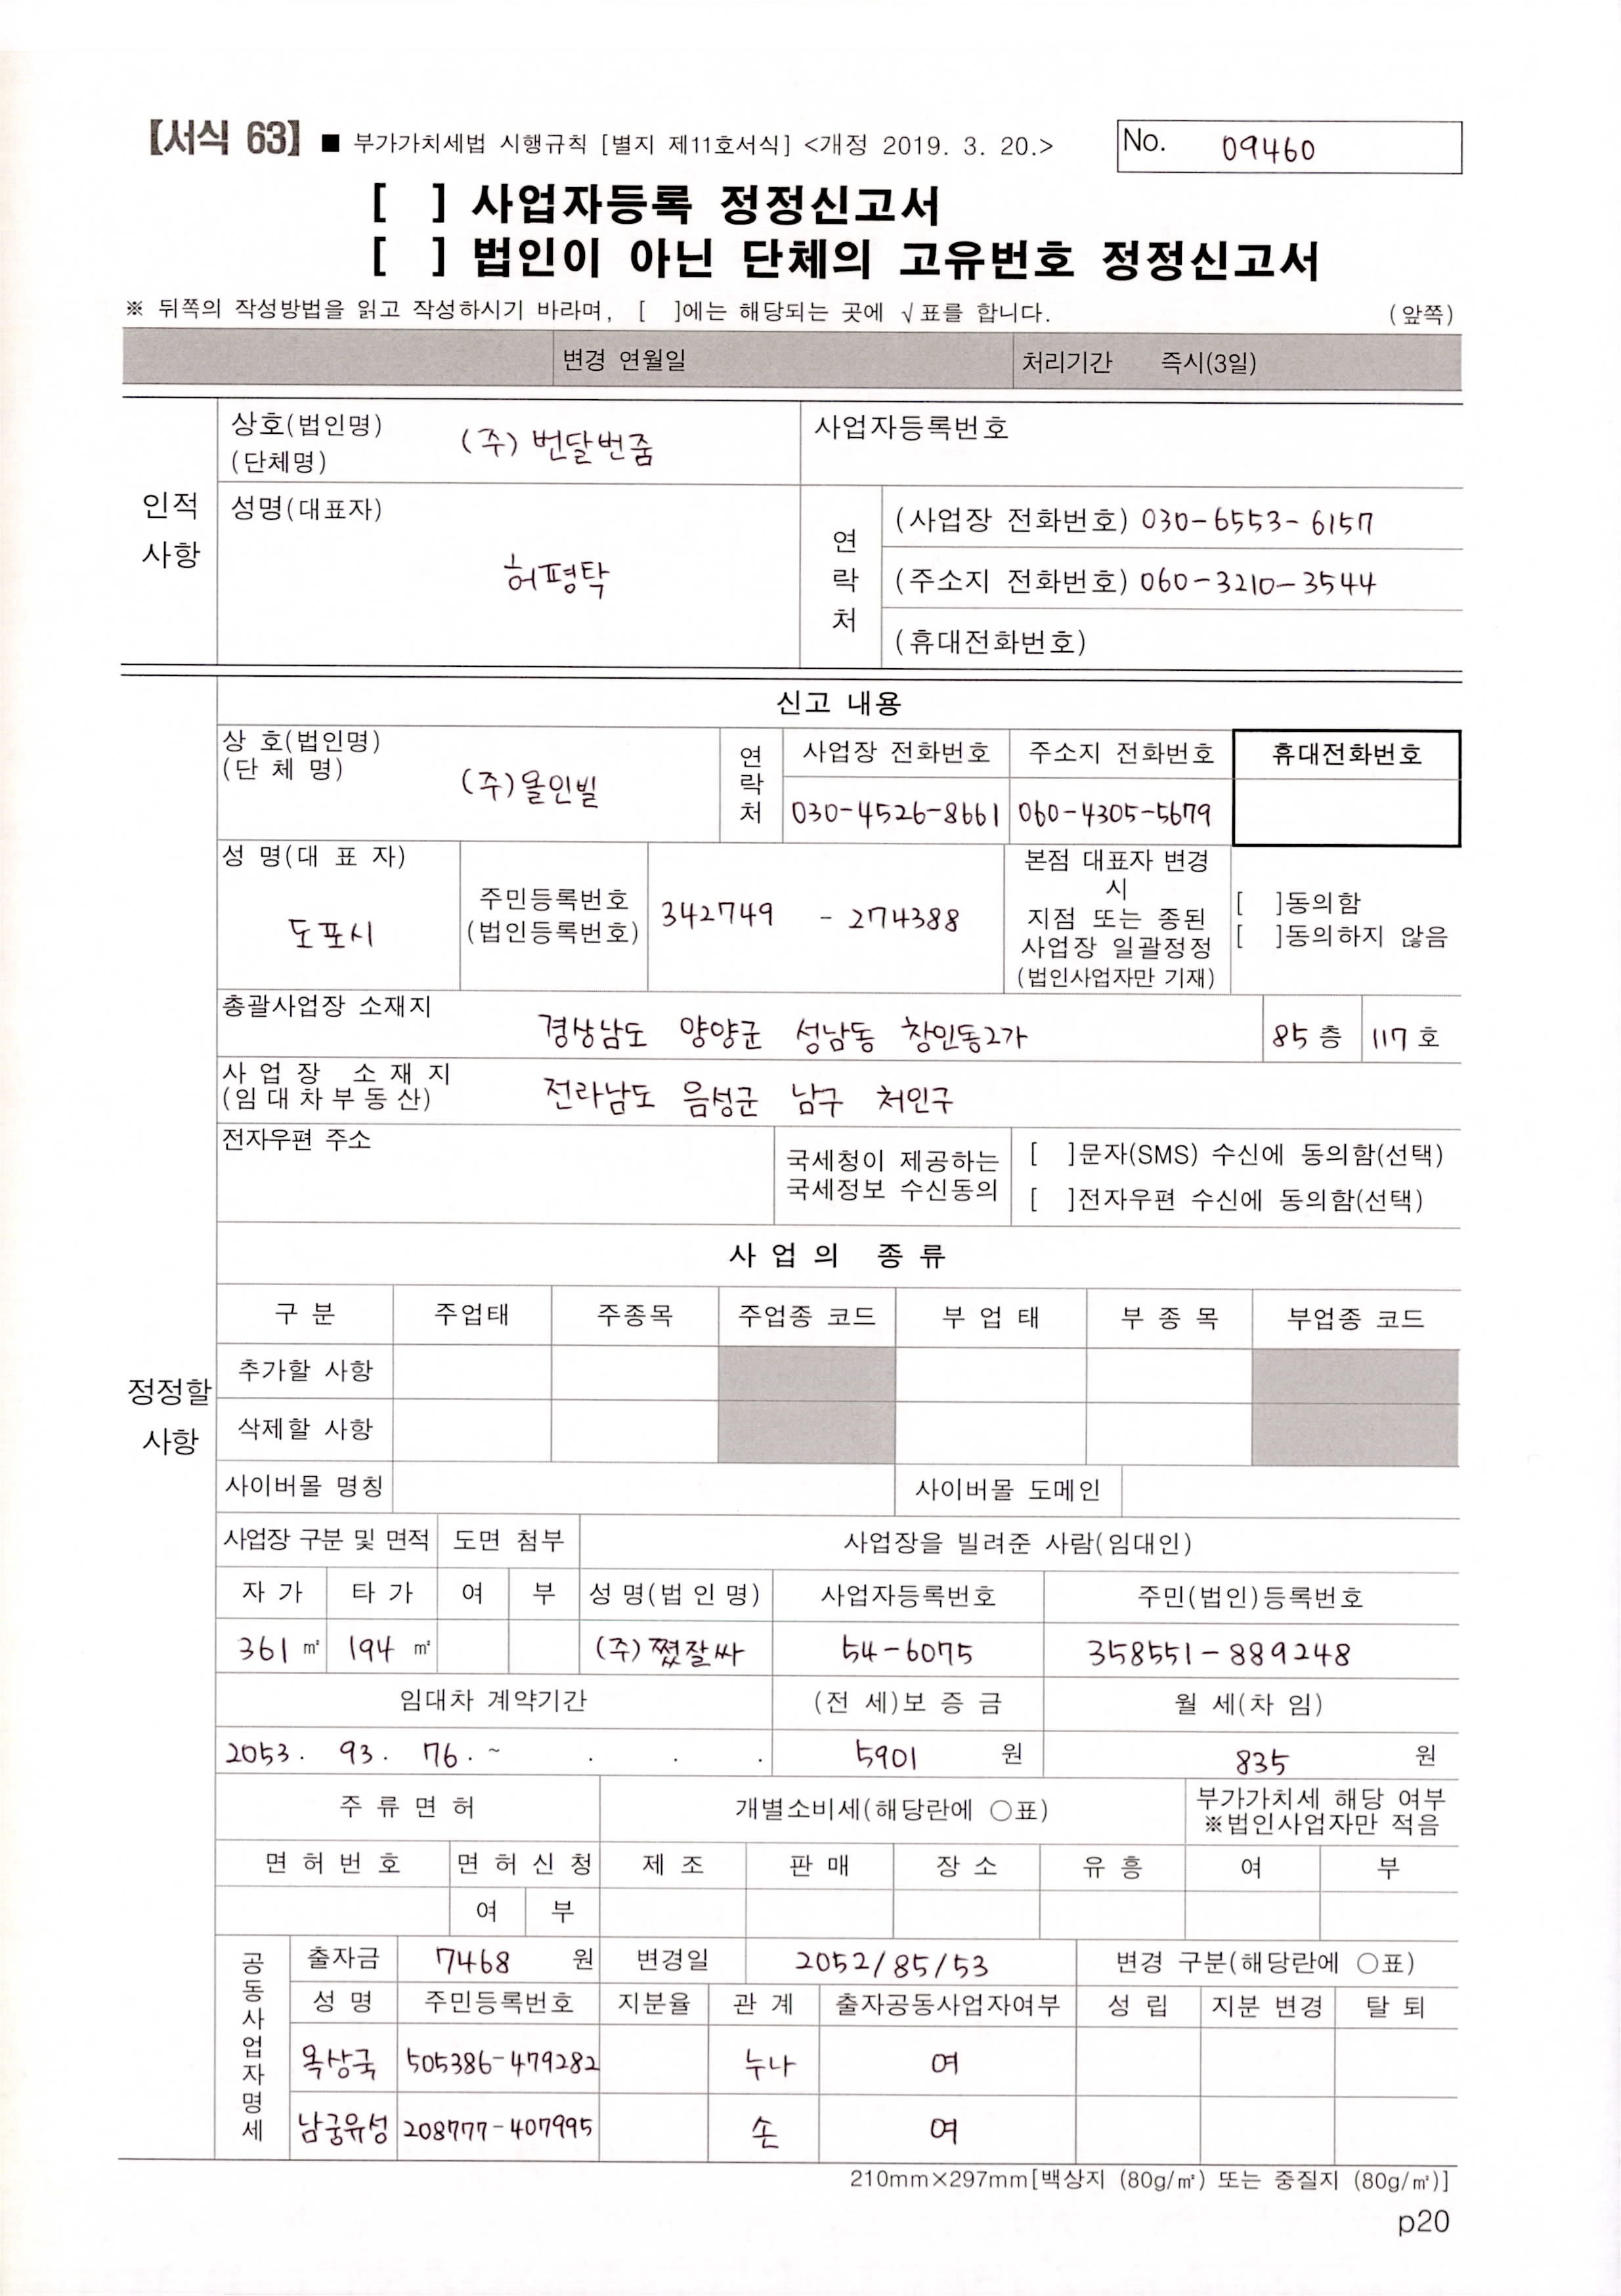 【서식 63】 ■ 부가가치세법 시행규칙 [별지 제11호서식] <개정 2019. 3. 20.> No. 09460
[ ] 사업자등록 정정신고서
[ ] 법인이 아닌 단체의 고유번호 정정신고서
※ 뒤쪽의 작성방법을 읽고 작성하시기 바라며, [ ]에는 해당되는 곳에 √표를 합니다. (앞쪽)
변경 연월일 처리기간 즉시(3일)
인적 사항
상호(법인명) (단체명) (주) 번달번줌 사업자등록번호
성명(대표자) 허평탁
연락처
(사업장 전화번호) 030-6553-6157
(주소지 전화번호) 060-3210-3544
(휴대전화번호)
정정할 사항
신고 내용
상 호(법인명) (단 체 명) (주)올인빌
연락처 사업장 전화번호 주소지 전화번호 휴대전화번호
030-4526-8661 060-4305-5679
성 명(대 표 자) 도포시
주민등록번호 (법인등록번호) 342749 - 274388
본점 대표자 변경
시
지점 또는 종된
사업장 일괄정정
(법인사업자만 기재)
[ ]동의함
[ ]동의하지 않음
총괄사업장 소재지 경상남도 양양군 성남동 창인동2가 85 층 117 호
사 업 장 소 재 지 (임대차부동산) 전라남도 음성군 남구 처인구
전자우편 주소
국세청이 제공하는
국세정보 수신동의
[ ]문자(SMS) 수신에 동의함(선택)
[ ]전자우편 수신에 동의함(선택)
사 업 의 종 류
구 분 주업태 주종목 주업종 코드 부 업 태 부 종 목 부업종 코드
추가할 사항
삭제할 사항
사이버몰 명칭 사이버몰 도메인
사업장 구분 및 면적 도면 첨부 사업장을 빌려준 사람(임대인)
자 가 타 가 여 부 성 명(법 인 명) 사업자등록번호 주민(법인)등록번호
361 ㎡ 194 ㎡ (주)쩠잘싸 54-6075 358551-889248
임대차 계약기간 (전 세)보 증 금 월 세(차 임)
2053. 93. 76. ~ . . . 5901 원 835 원
주 류 면 허 개별소비세(해당란에 ○표) 부가가치세 해당 여부
※법인사업자만 적음
면 허 번 호 면 허 신 청 제 조 판 매 장 소 유 흥 여 부
여 부
공동사업자명세
출자금 7468 원 변경일 2052/85/53 변경 구분(해당란에 ○표)
성 명 주민등록번호 지분율 관 계 출자공동사업자여부 성 립 지분 변경 탈 퇴
옥상국 505386-479282 누나 여
남궁유성 208777-407995 손 여
210mm×297mm[백상지 (80g/㎡) 또는 중질지 (80g/㎡)]
p20